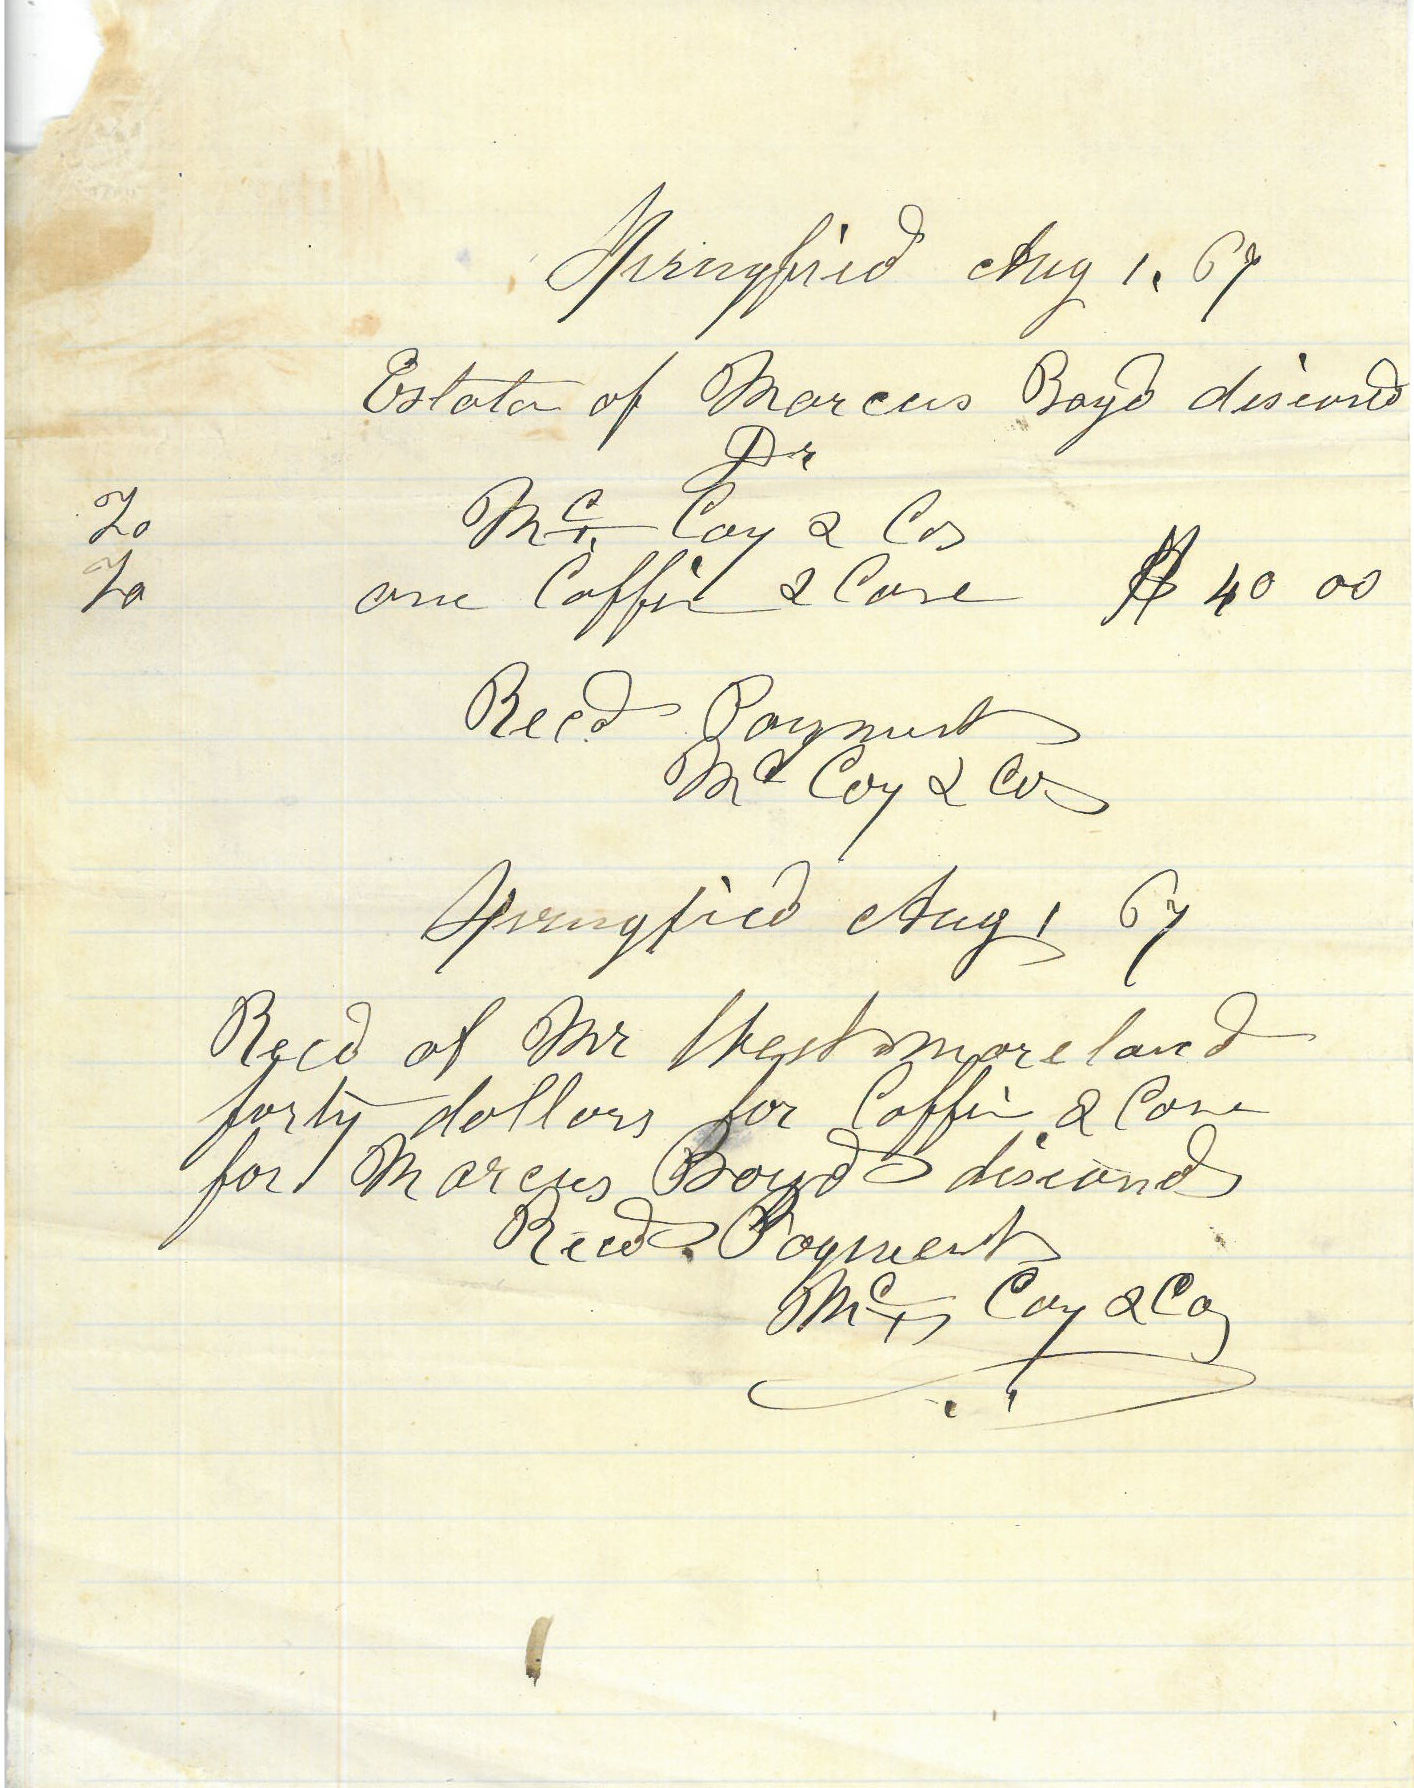 Springfied Aug 1, 67
Estate of Marcus Boyd diseased
Dr
To McCoy & Co
To one Coffin & Case $ 40 00
Recd Payment
McCoy & Co
Springfied Aug 1 67
Recd of Mr Westmoreland
forty dollars for Coffin & Case
for Marcus Boyd diseased
Recd Payment
McCoy & Co